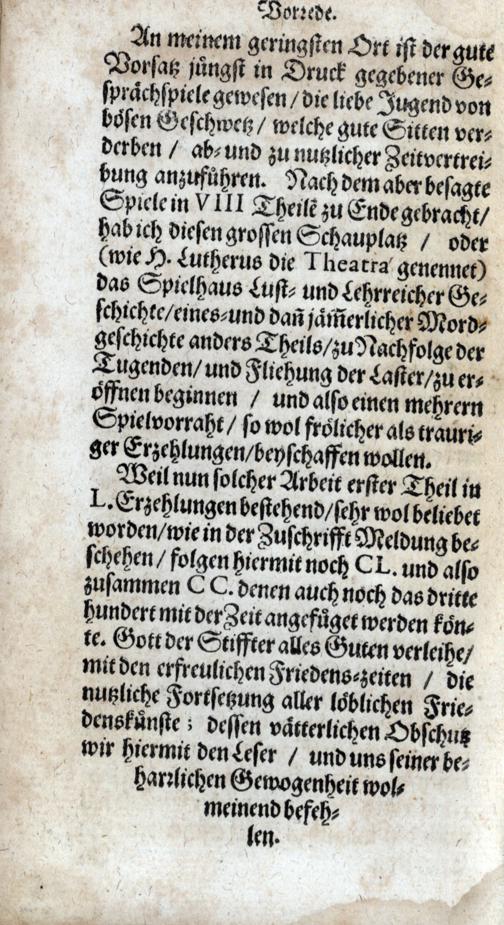 Vorrede.
An meinem geringsten Ort ist der gute
Vorsatz jüngst in Druck gegebener Ge-
sprächspiele gewesen / die liebe Jugend von
bösen Geschwetz / welche gute Sitten ver-
derben / ab- und zu nutzlicher Zeitvertrei-
bung anzuführen. Nach dem aber besagte
Spiele in VIII Theilē zu Ende gebracht /
hab ich diesen grossen Schauplatz / oder
(wie H. Lutherus die Theatra genennet)
das Spielhaus Lust- und Lehrreicher Ge-
schichte / eines- und dañ jäm̃erlicher Mord-
geschichte anders Theils / zu Nachfolge der
Tugenden / und Fliehung der Laster / zu er-
öffnen beginnen / und also einen mehrern
Spielvorraht / so wol frölicher als trauri-
ger Erzehlungen / beyschaffen wollen.
Weil nun solcher Arbeit erster Theil in
L. Erzehlungen bestehend / sehr wol beliebet
worden / wie in der Zuschrifft Meldung be-
schehen / folgen hiermit noch CL. und also
zusammen CC. denen auch noch das dritte
hundert mit der Zeit angefüget werden kön-
te. Gott der Stiffter alles Guten verleihe /
mit den erfreulichen Friedens-zeiten / die
nutzliche Fortsetzung aller löblichen Frie-
denskünste ; dessen vätterlichen Obschutz
wir hiermit den Leser / und uns seiner be-
harrlichen Gewogenheit wol-
meinend befeh-
len.